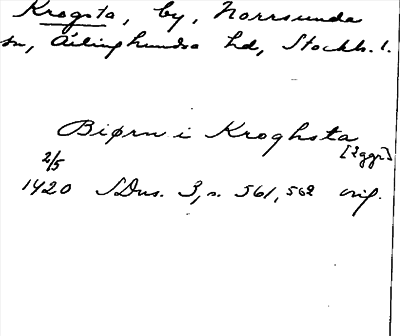 Krogsta, by, Norrsunda
sn, Ärlinghundra hd, Stockh. l.
Biørn i Kroghsta
[2ggr]
2/5
1420 SDns. 3, s. 561, 562 orig.